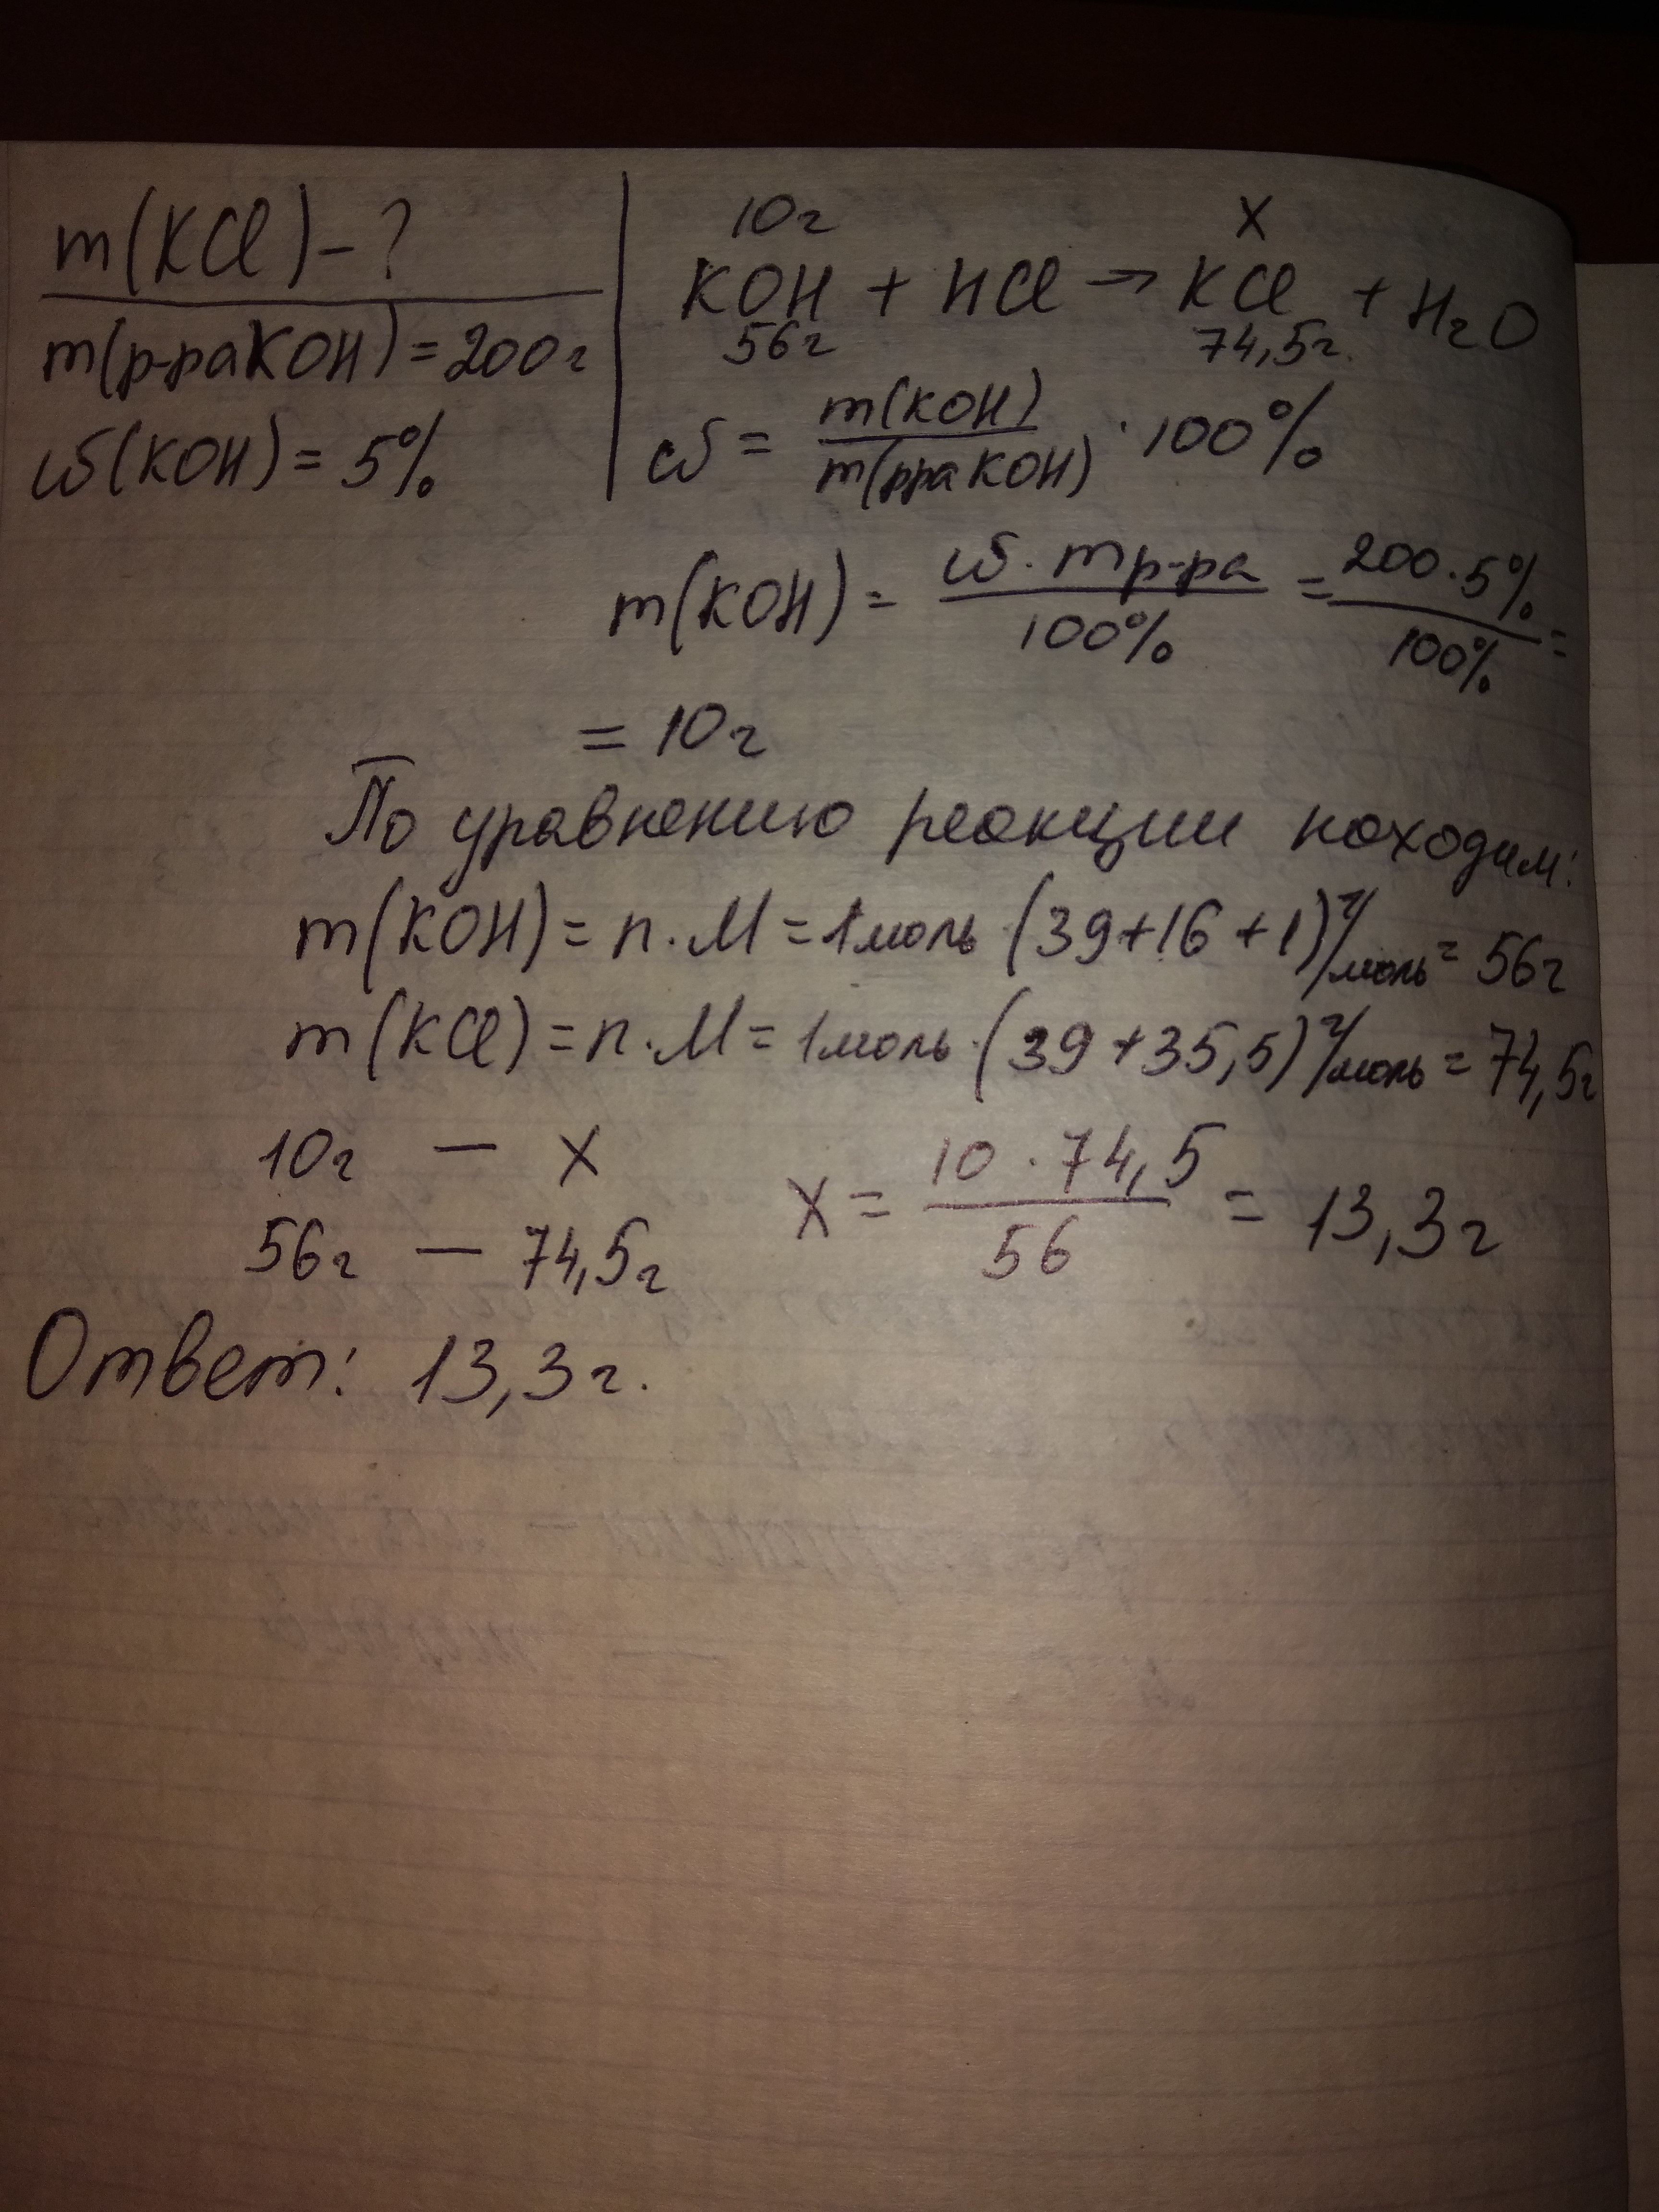 m(KCl) - ?
m(р-ра KOH) = 200г
ω(KOH) = 5%
10г X
KOH + HCl → KCl + H₂O
56г 74,5г.
ω = m(KOH) / m(рра KOH) · 100%
m(KOH) = ω · m р-ра / 100% = 200 · 5% / 100% =
= 10г
По уравнению реакции находим:
m(KOH) = n · M = 1моль · (39+16+1) г/моль = 56г
m(KCl) = n · M = 1моль · (39+35,5) г/моль = 74,5г
10г — X
56г — 74,5г
X = 10 · 74,5 / 56 = 13,3г
Ответ: 13,3г.